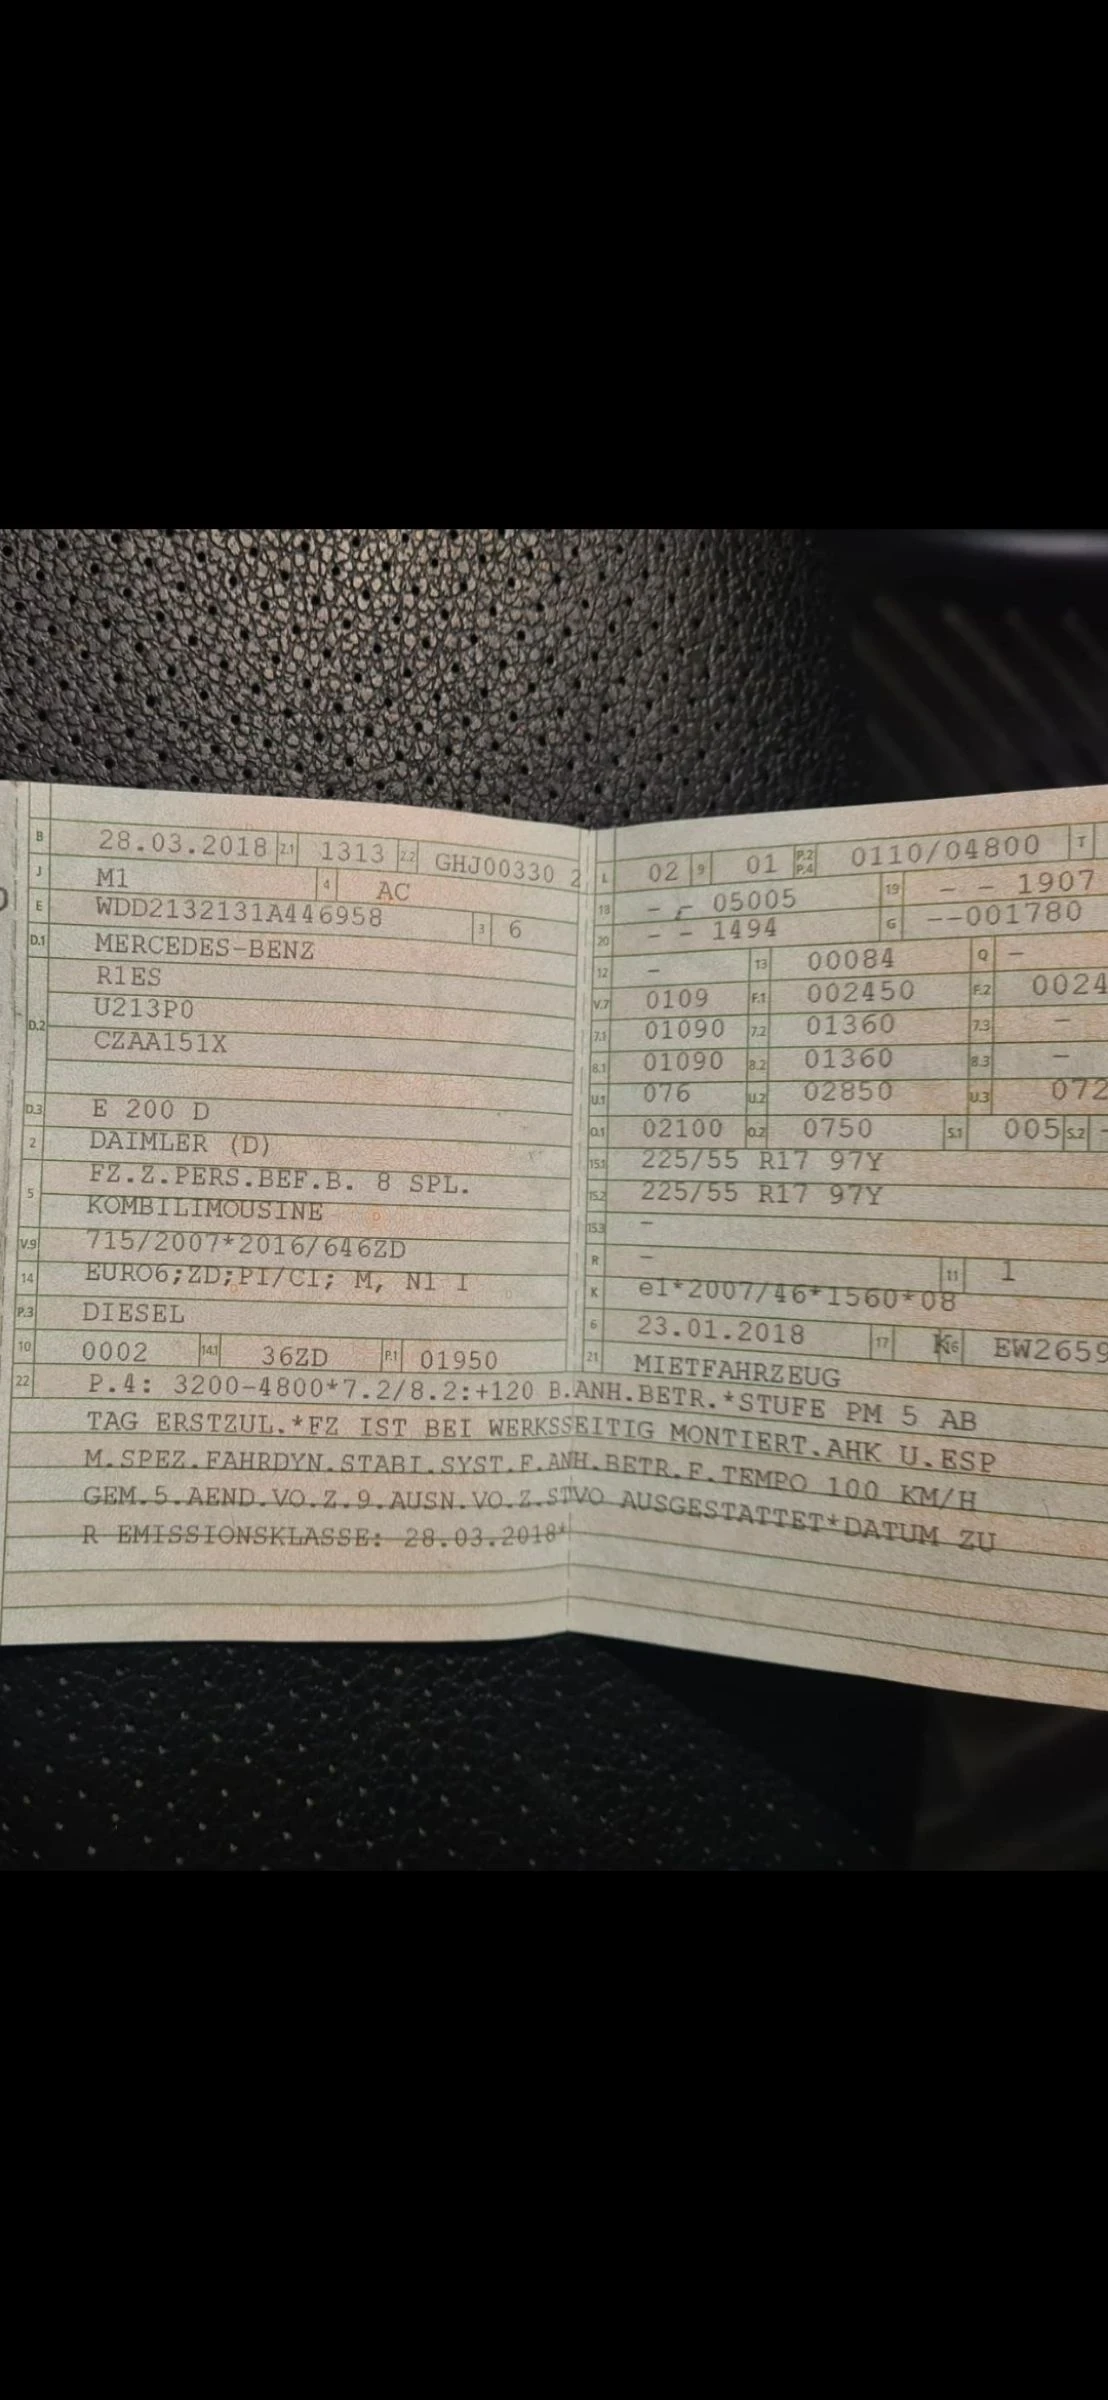 B 28.03.2018 2.1 1313 2.2 GHJ00330 2
J M1 4 AC
E WDD2132131A446958 3 6
D.1 MERCEDES-BENZ
R1ES
D.2 U213P0
CZAA151X
D.3 E 200 D
2 DAIMLER (D)
5 FZ.Z.PERS.BEF.B. 8 SPL.
KOMBILIMOUSINE
V.9 715/2007*2016/646ZD
14 EURO6;ZD;PI/CI; M, N1 I
P.3 DIESEL
10 0002 14.1 36ZD P.1 01950
L 02 9 01 P.2 P.4 0110/04800 T
18 - - 05005 19 - - 1907
20 - - 1494 G --001780
12 - 13 00084 Q -
V.7 0109 F.1 002450 F.2 0024
7.1 01090 7.2 01360 7.3 -
8.1 01090 8.2 01360 8.3 -
U.1 076 U.2 02850 U.3 072
O.1 02100 O.2 0750 S.1 005 S.2 -
15.1 225/55 R17 97Y
15.2 225/55 R17 97Y
15.3 -
R - 11 1
K e1*2007/46*1560*08
6 23.01.2018 17 K 16 EW2659
21 MIETFAHRZEUG
22 P.4: 3200-4800*7.2/8.2:+120 B.ANH.BETR.*STUFE PM 5 AB
TAG ERSTZUL.*FZ IST BEI WERKSSEITIG MONTIERT.AHK U.ESP
M.SPEZ.FAHRDYN.STABI.SYST.F.ANH.BETR.F.TEMPO 100 KM/H
GEM.5.AEND.VO.Z.9.AUSN.VO.Z.STVO AUSGESTATTET*DATUM ZU
R EMISSIONSKLASSE: 28.03.2018*